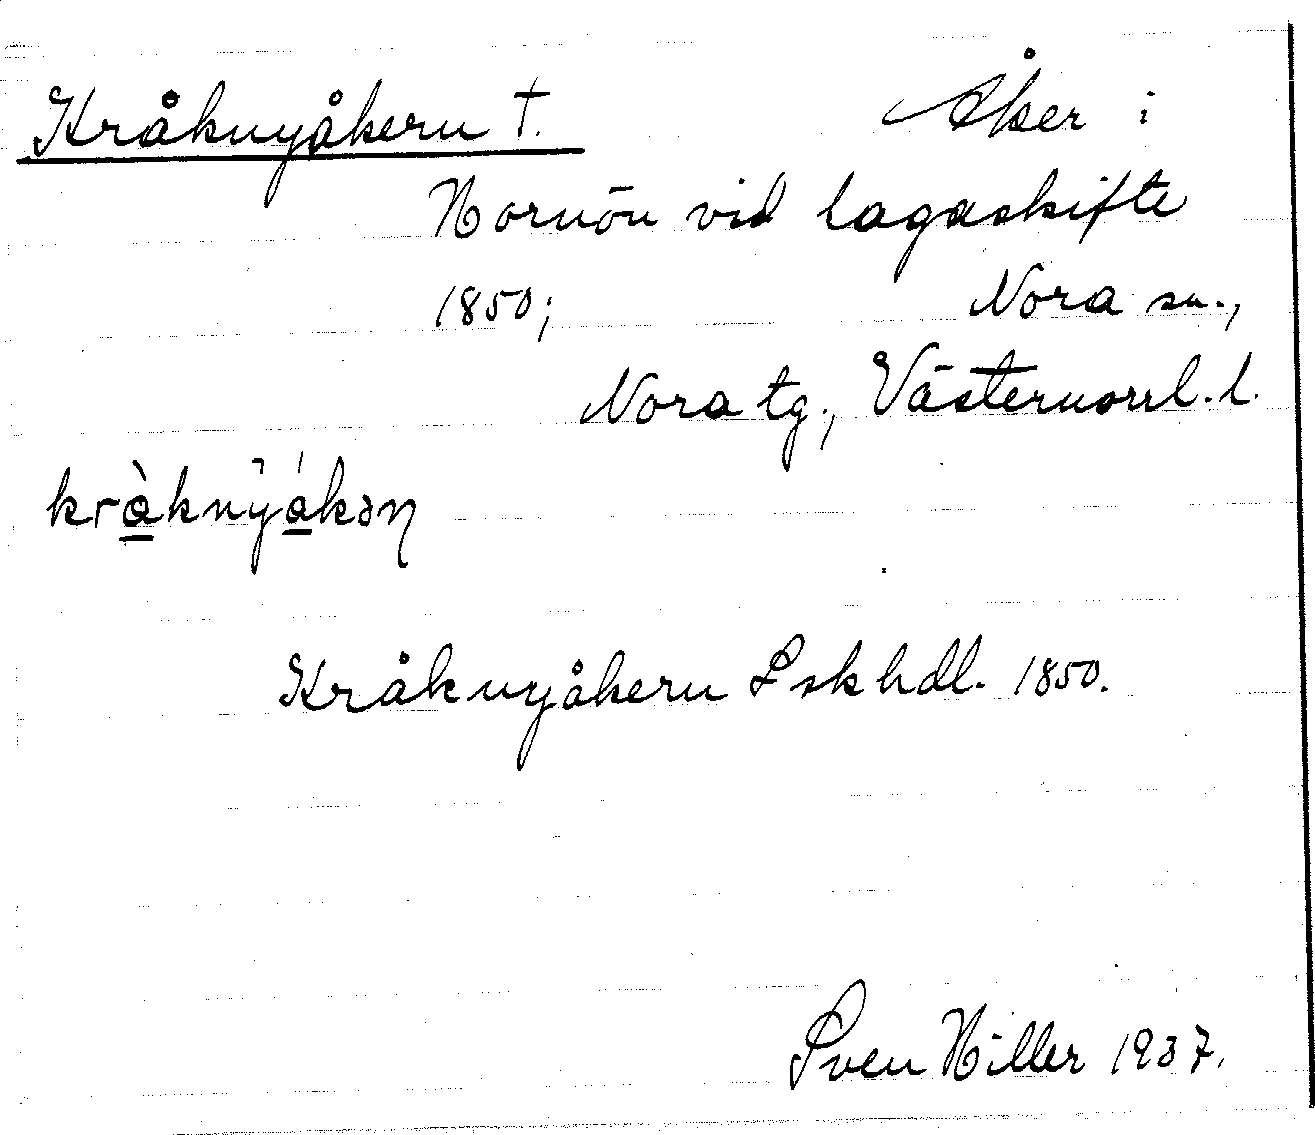 Kråknyåkern †. Åker i
Hornön vid lagaskifte
1850; Nora sn.,
Nora tg., Västernorrl. l.
kràknýákən
Kråknyåkern Lskhdl. 1850.
Sven Hiller 1937.